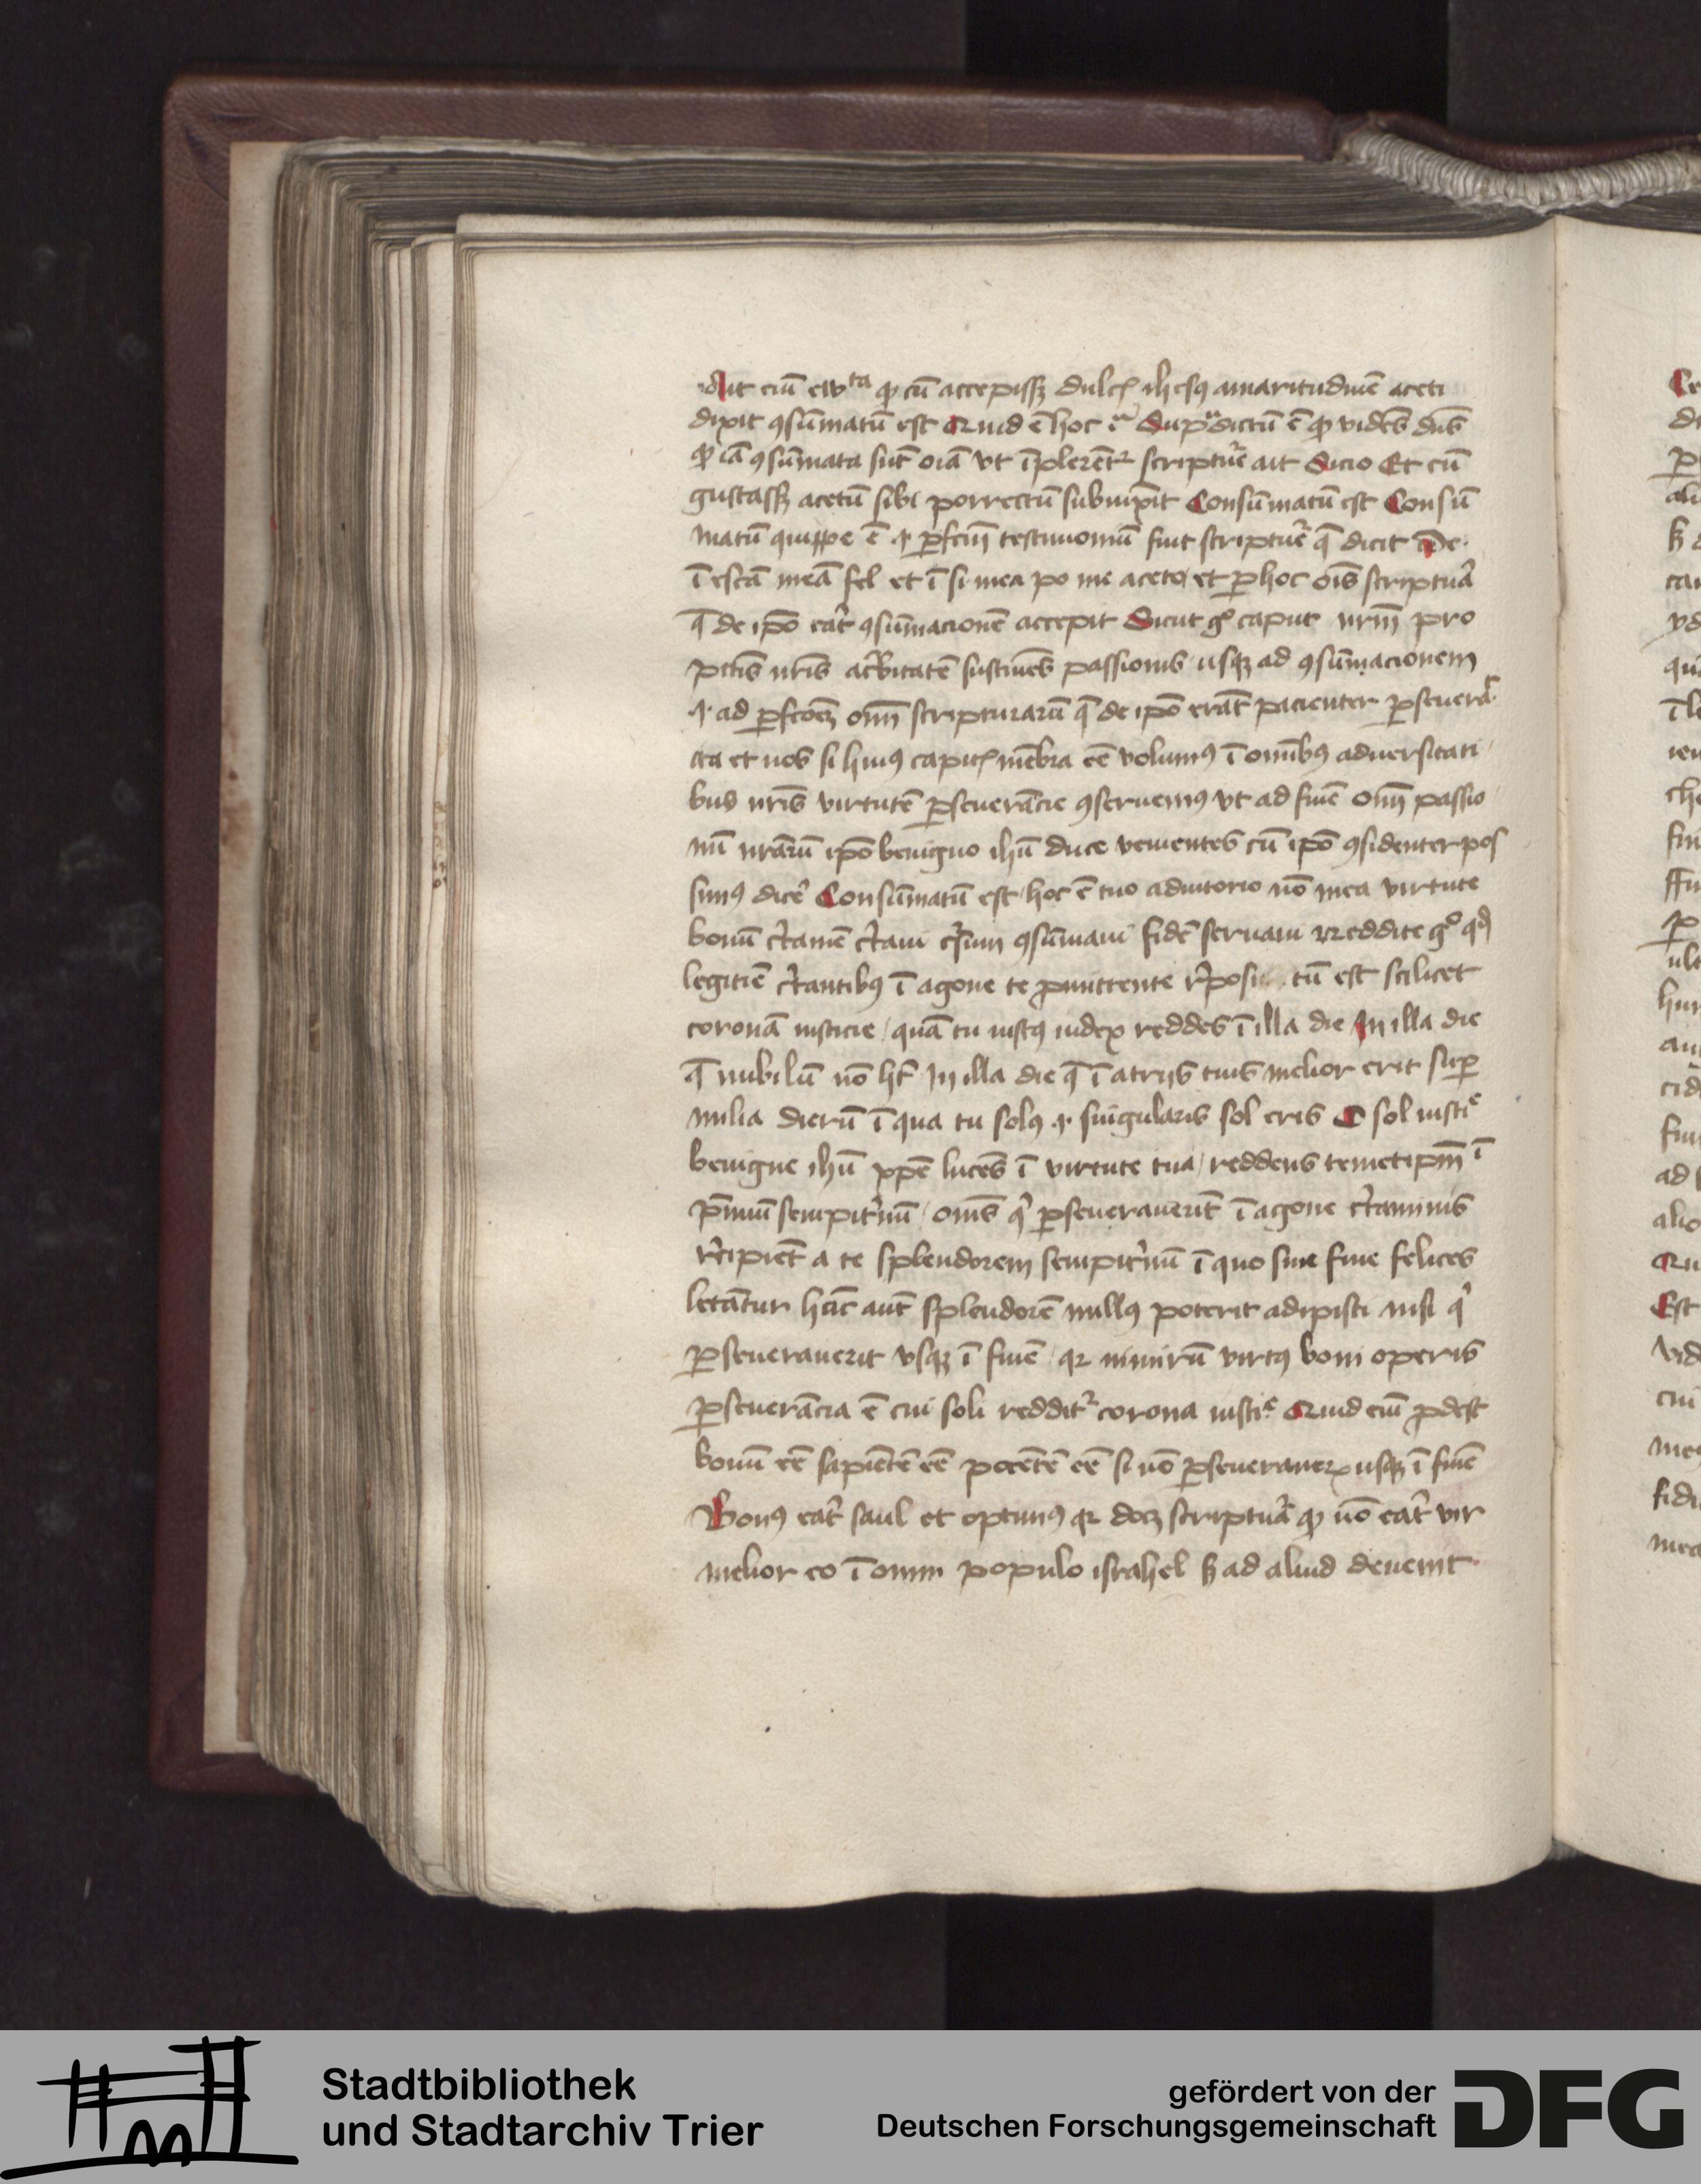 Ait eim̄ ewᵗᵃ ꝙ cū accepissꝫ dulcꝭ ihesꝰ amaritudinē aceti
dixit ꝯsūmatū est Quid ē hoc Supᵃdictū ē ꝙ vidēs dn̄s
ꝙ iā ꝯsūmata sūt oīa vt īplerēt᷑ scriptur̄e ait Sicio Et cū
gustassꝫ acetū sibi porrectū subiūxit Consūmatū est Consū
matū quippe ē .i. ꝑfcm̄ testimoniū fuit scriptur̄e q̄ dicit
ī escā meā fel et ī si mea po me aceto et ꝑ hoc oīs scriptur̄a
q̄ de ipō erāt ꝯsūmacionē accepit Sicut gͦ caput nrm̄ pro
pctīs nrīs ac̄bitatē sustinēs passionis usqꝫ ad ꝯsūmacionem
.i. ad ꝑfcōeꝫ om̄n scripturarū q̄ de ipō erāt pacienter ꝑseuerāt
ita et nos si huiꝰ capitꝭ mēbra eē volumꝰ ī omībꝰ aduersitati
bus nrīs virtutē ꝑseuerācie ꝯseruemꝰ vt ad finē om̄n passio
nū nrārū ipō benigno ihū duce venientes cū ipō ꝯfidenter pos
simꝰ dicē Consūmatū est hoc ē tuo adiutorio nō mea virtute
bonū c̄tamē c̄taui c̄sum ꝯsūmaui fidē seruaui Reddite gͦ qd̄
legitīe c̄tantibꝰ ī agone te ꝓmittente r̄positū est scilicet
coronā iusticie quā tu iustꝰ iudex reddes ī illa die In illa die
q̄ nubilū nō hꝫ In illa die q̄ ī atrijs tuis melior erit suꝑ
milia dierū ī qua tu solꝰ .i. singularis sol eris O sol iustiᵉ
benigne ihū xpē lucēs ī virtute tua reddens temetipm̄ ī
p̄miū sempit̄nū om̄s qⁱ ꝑseuerauerīt ī agone c̄taminis
r̄cipiēt a te splendorem sempit̄nū ī quo sine fine felices
letātur hūc aūt splendorē nullꝰ poterit adipisci nisi qⁱ
ꝑseuerauerit vsqꝫ ī finē qꝛ nimirū virtꝰ boni operis
ꝑseuerācia ē cui soli reddit᷑ corona iustiᵉ Quid eim̄ ꝓdest
bonū eē sapiētē eē potētē eē si nō ꝑseuerauerꝭ usqꝫ ī finē
Bonꝰ erāt saul et optimꝰ qꝛ docꝫ scriptur̄a ꝙ nō erāt vir
melior eo ī omni populo israhel sꝫ ad aliud deuenit
Stadtbibliothek
und Stadtarchiv Trier
gefördert von der
Deutschen Forschungsgemeinschaft
DFG